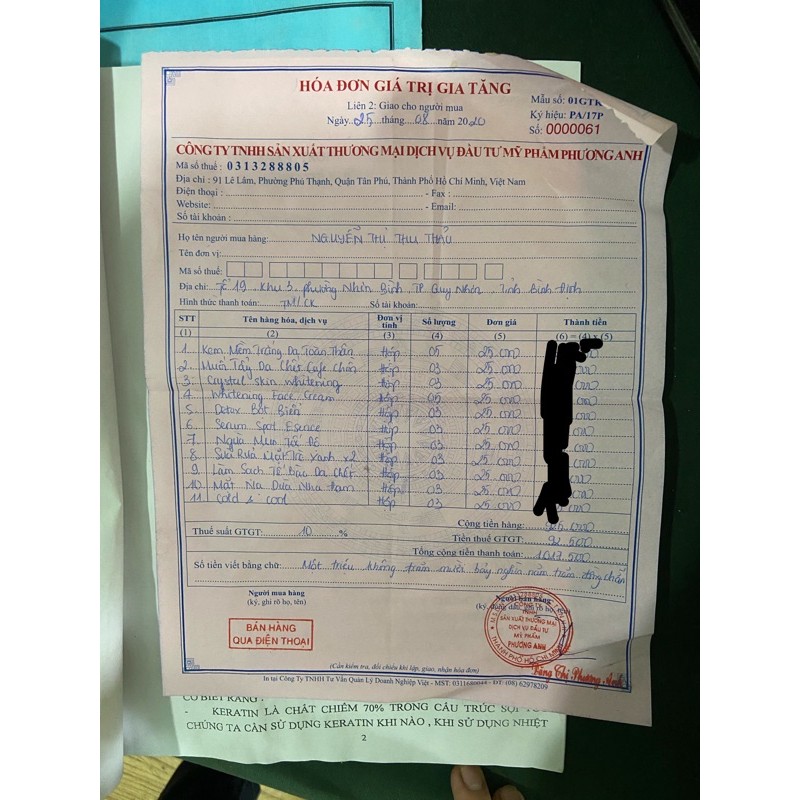 HÓA ĐƠN GIÁ TRỊ GIA TĂNG
Liên 2: Giao cho người mua
Ngày 25 tháng 08 năm 2020
Mẫu số: 01GTK
Ký hiệu: PA/17P
Số: 0000061
CÔNG TY TNHH SẢN XUẤT THƯƠNG MẠI DỊCH VỤ ĐẦU TƯ MỸ PHẨM PHƯƠNG ANH
Mã số thuế : 0313288805
Địa chỉ : 91 Lê Lâm, Phường Phú Thạnh, Quận Tân Phú, Thành Phố Hồ Chí Minh, Việt Nam
Điện thoại : - Fax :
Website: - Email:
Số tài khoản :
Họ tên người mua hàng: NGUYỄN THỊ THU THẢO
Tên đơn vị:
Mã số thuế:
Địa chỉ: Tổ 19, Khu 3, phường Nhơn Bình, TP Quy Nhơn, Tỉnh Bình Định
Hình thức thanh toán: TM/CK Số tài khoản:
STT Tên hàng hóa, dịch vụ Đơn vị tính Số lượng Đơn giá Thành tiền
(1) (2) (3) (4) (5) (6) = (4) x (5)
1 Kem Mềm Trắng Da Toàn Thân Hộp 05 25.000
2 Muối Tẩy Da Chết Cafe Chồn Hộp 03 25.000
3 Crystal skin whitening Hộp 03 25.000
4 Whitening Face Cream Hộp 05 25.000
5 Detox Bột Biển Hộp 03 25.000
6 Serum Spot Esence Hộp 03 25.000
7 Ngừa Mụn Tổ Đỏ Hộp 03 25.000
8 Sữa Rửa Mặt Trà Xanh x2 Hộp 03 25.000
9 Làm Sạch Tế Bào Da Chết Hộp 03 25.000
10 Mặt Nạ Dừa Nha Đam Hộp 03 25.000
11 Cold & Cool Hộp 03 25.000
Cộng tiền hàng: 925.000
Thuế suất GTGT: 10 % Tiền thuế GTGT: 92.500
Tổng cộng tiền thanh toán: 1.017.500
Số tiền viết bằng chữ: Một triệu không trăm mười bảy nghìn năm trăm đồng chẵn
Người mua hàng
(ký, ghi rõ họ, tên)
Người bán hàng
BÁN HÀNG
QUA ĐIỆN THOẠI
SẢN XUẤT THƯƠNG MẠI
DỊCH VỤ ĐẦU TƯ
MỸ PHẨM
PHƯƠNG ANH
THÀNH PHỐ HỒ CHÍ MINH
Tăng Chi Phương Anh
(Cần kiểm tra, đối chiếu khi lập, giao, nhận hóa đơn)
In tại Công Ty TNHH Tư Vấn Quản Lý Doanh Nghiệp Việt - MST: 0311680044 - ĐT: (08) 62978209
CÓ BIẾT RẰNG :
- KERATIN LÀ CHẤT CHIẾM 70% TRONG CẤU TRÚC SỢI
CHÚNG TA CẦN SỬ DỤNG KERATIN KHI NÀO , KHI SỬ DỤNG NHIỆT
2